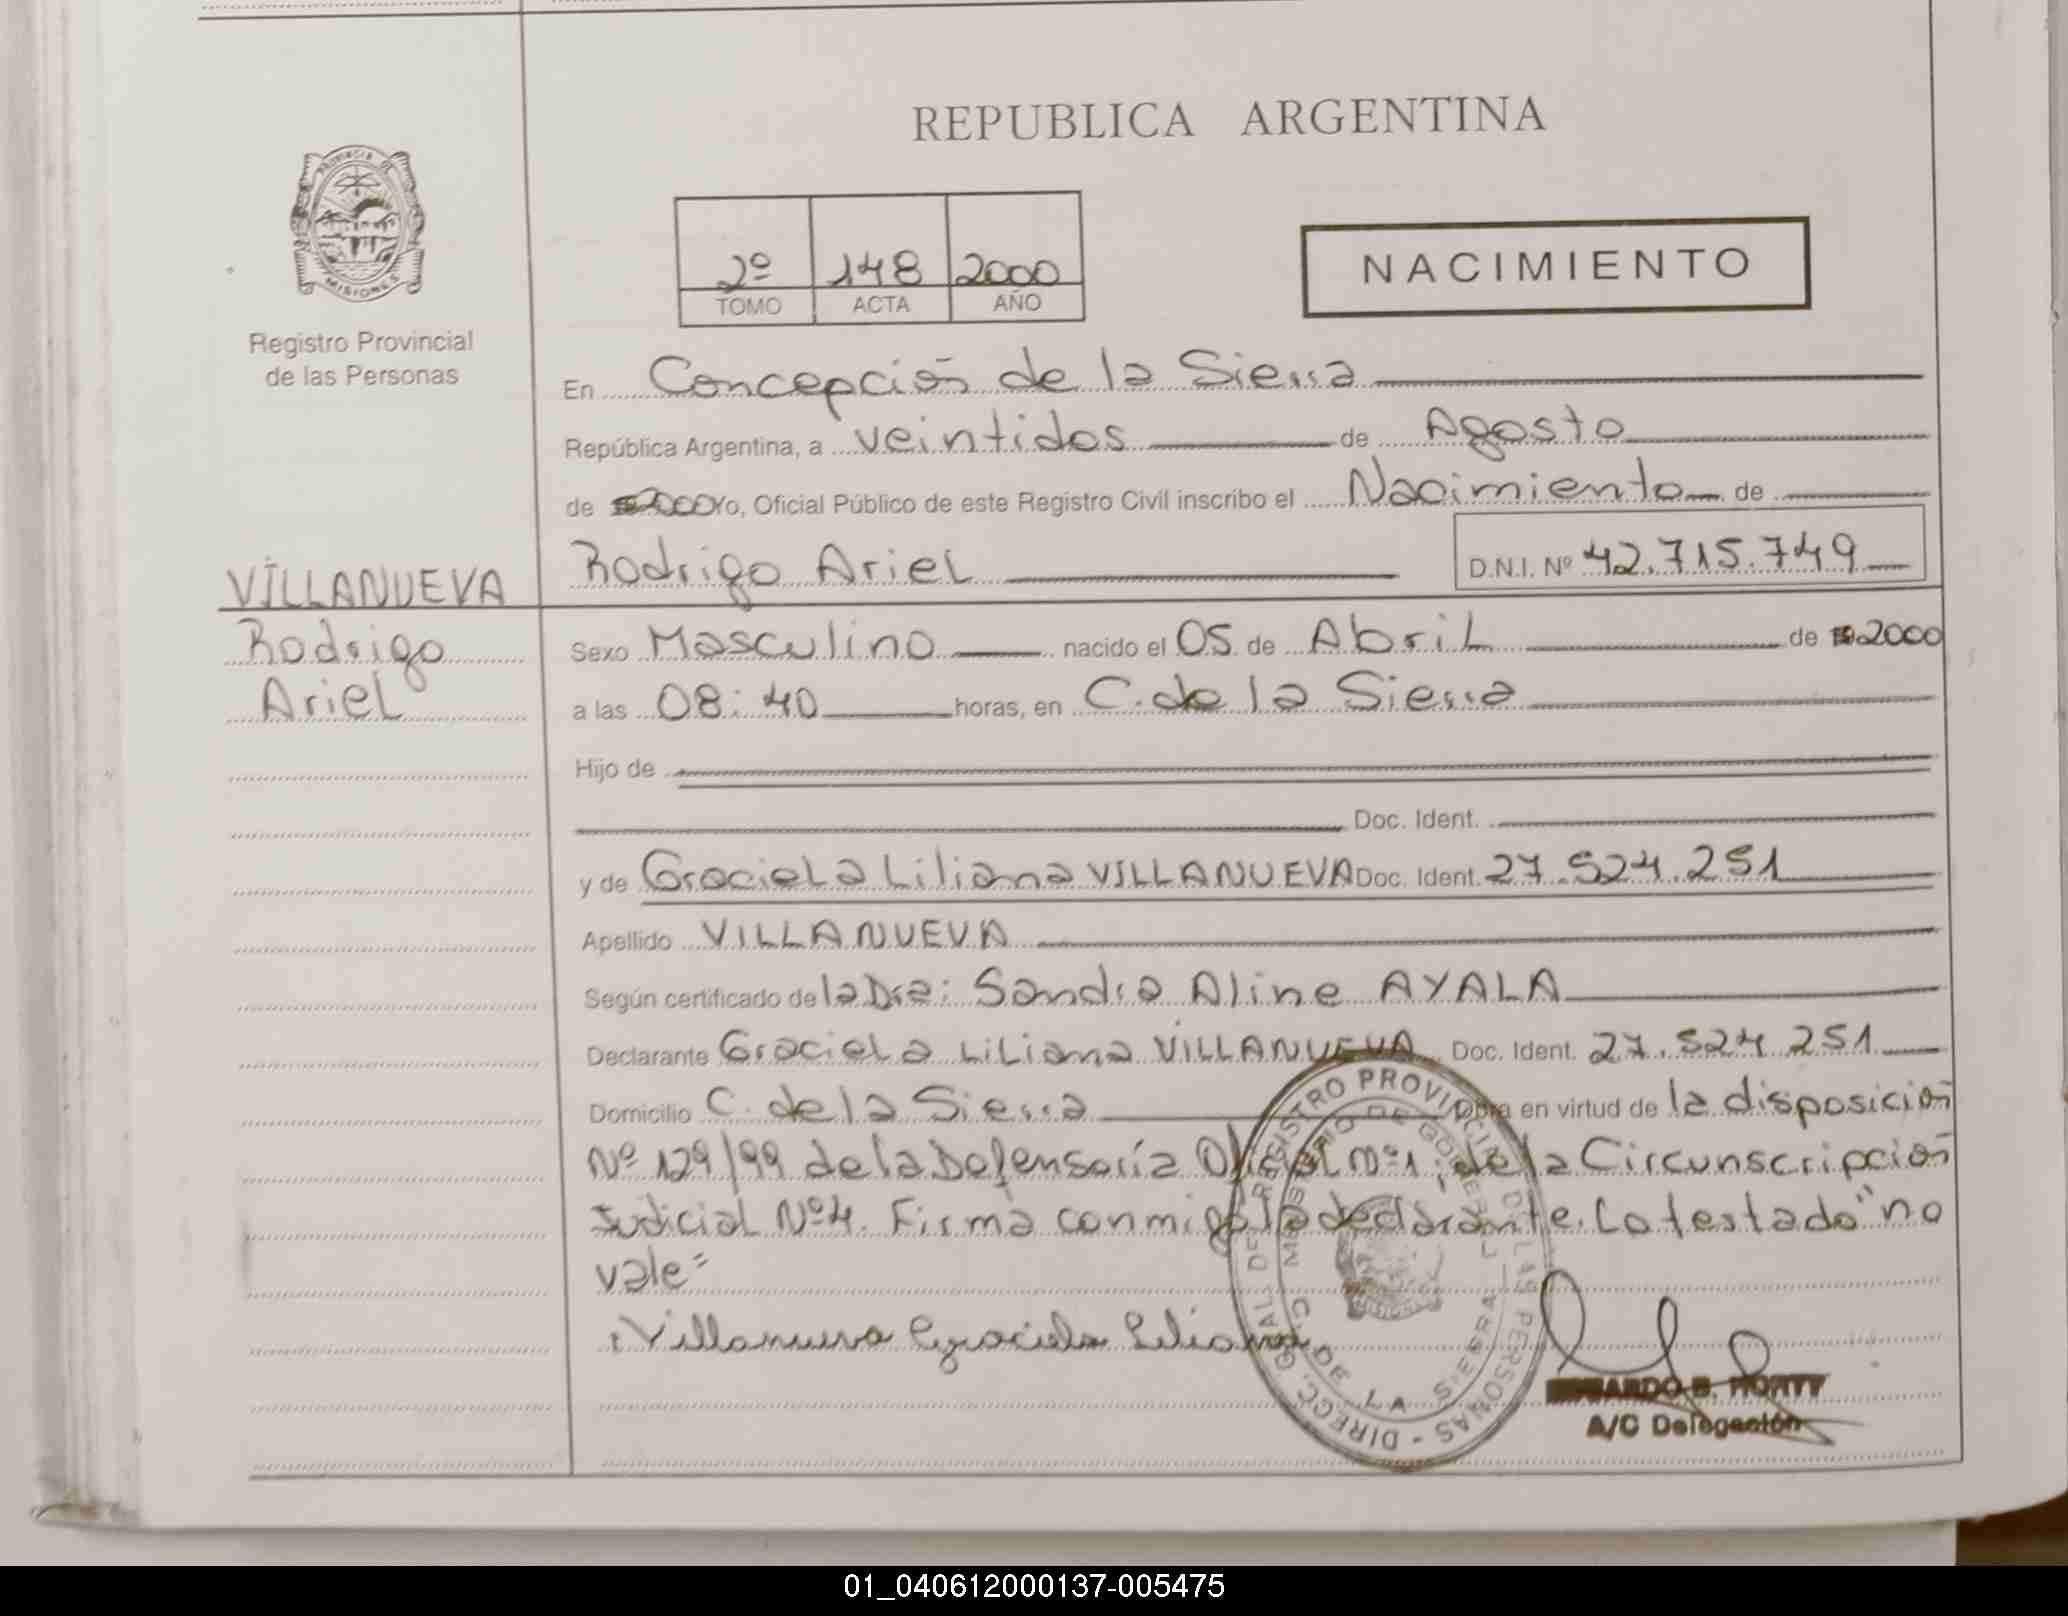 REPUBLICA ARGENTINA
PROVINCIA DE MISIONES
Registro Provincial
de las Personas
2º 148 2000
TOMO ACTA AÑO
NACIMIENTO
En Concepción de la Sierra
República Argentina, a veintidos de Agosto
de 2000 Yo, Oficial Público de este Registro Civil inscribo el Nacimiento de
Rodrigo Ariel D.N.I. Nº 42.715.749
VILLANUEVA
Rodrigo
Ariel
Sexo Masculino nacido el 05 de Abril de 2000
a las 08:40 horas, en C. de la Sierra
Hijo de
Doc. Ident.
y de Graciela Liliana VILLANUEVA Doc. Ident. 27.524.251
Apellido VILLANUEVA
Según certificado de la Dra: Sandra Aline AYALA
Declarante Graciela Liliana VILLANUEVA Doc. Ident. 27.524.251
Domicilio C. de la Sierra Obra en virtud de la disposición
Nº 129/99 de la Defensoría Oficial Nº1, de la Circunscripción
Judicial Nº4. Firma conmigo la declarante. Lo testado "no
vale=
Villanueva Graciela Liliana
DIRECC. GRAL. DEL REGISTRO PROVINCIAL DE LAS PERSONAS
MINISTERIO DE GOBIERNO
C. DE LA SIERRA
A/C Delegación
01_040612000137-005475